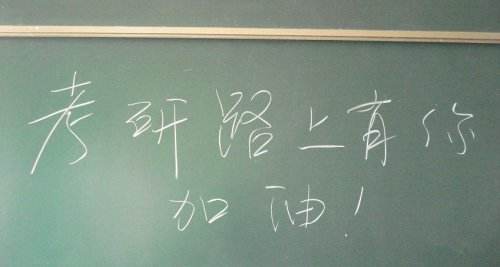 考研路上有你
加油!